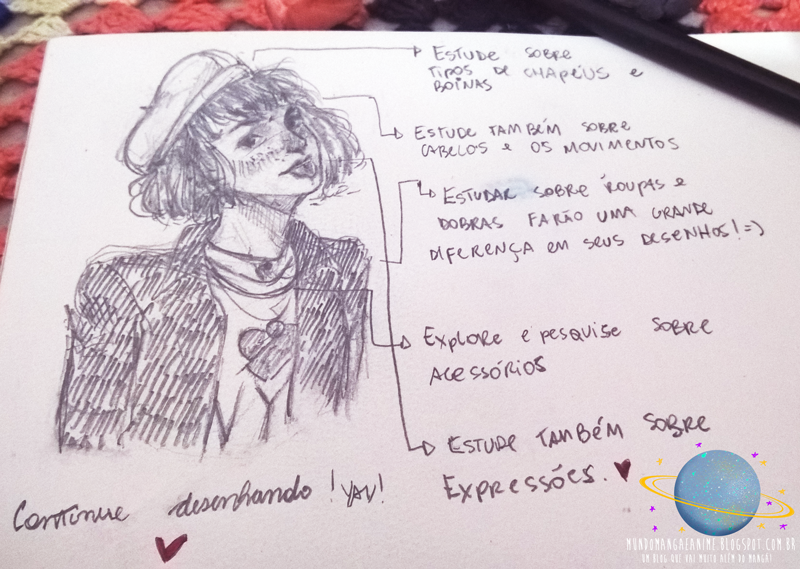 ESTUDE SOBRE
TIPOS DE CHAPÉUS E
BOINAS
ESTUDE TAMBÉM SOBRE
CABELOS E OS MOVIMENTOS
ESTUDAR SOBRE ROUPAS E
DOBRAS FARÃO UMA GRANDE
DIFERENÇA EM SEUS DESENHOS! =)
EXPLORE E PESQUISE SOBRE
ACESSÓRIOS
ESTUDE TAMBÉM SOBRE
EXPRESSÕES. ♥
Continue desenhando! YAY!
♥
MUNDOMANGAEANIME.BLOGSPOT.COM.BR
UM BLOG QUE VAI MUITO ALÉM DO MANGÁ!